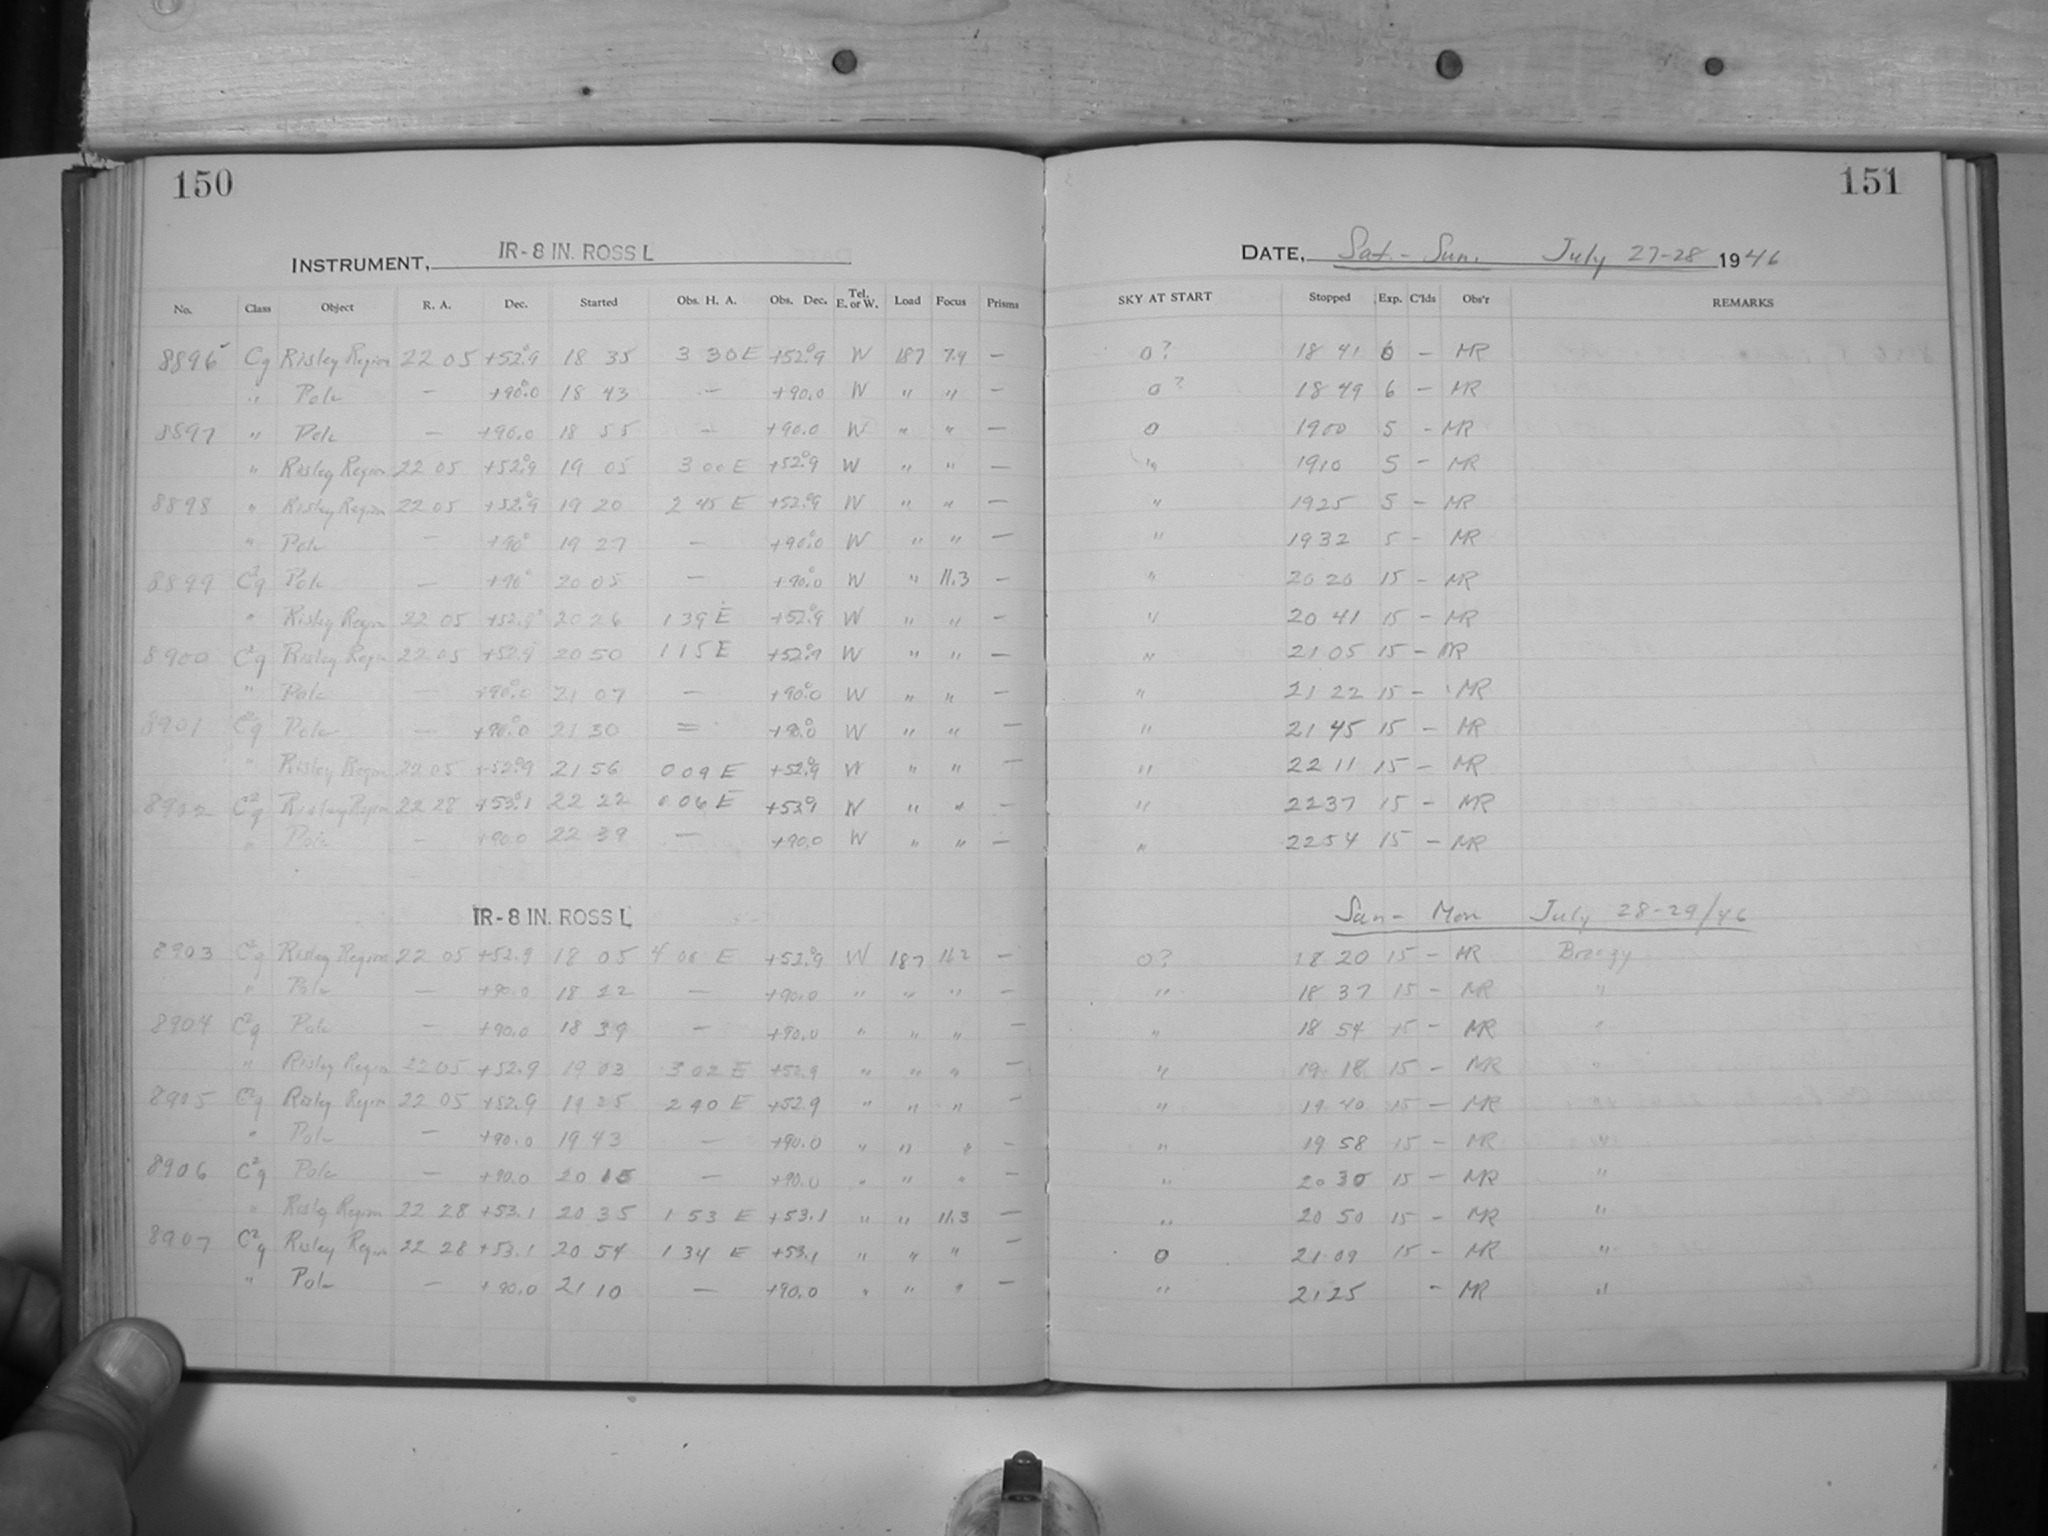 150
INSTRUMENT, IR-8 IN. ROSS L
No. Class Object R. A. Dec. Started Obs. H. A. Obs. Dec. Tel. E. or W. Load Focus Prisms
8896 Cg Risley Region 22 05 +52°.9 18 35 3 30 E +52°.9 W 187 7.9 —
" Pole — +90°.0 18 43 — +90.0 W " " —
8897 " Pole — +90.0 18 55 — +90.0 W " " —
" Risley Region 22 05 +52°.9 19 05 3 00 E +52°.9 W " " —
8898 " Risley Region 22 05 +52°.9 19 20 2 45 E +52°.9 W " " —
" Pole — +90° 19 27 — +90°.0 W " " —
8899 C²g Pole — +90° 20 05 — +90°.0 W " 11.3 —
" Risley Region 22 05 +52.9° 20 26 1 39 E +52°.9 W " " —
8900 C²g Risley Region 22 05 +52.9 20 50 1 15 E +52°.9 W " " —
" Pole — +90°.0 21 07 — +90°.0 W " " —
8901 C²g Pole — +90°.0 21 30 = +90°.0 W " " —
" Risley Region 22 05 +52°.9 21 56 0 09 E +52°.9 W " " —
8902 C²g Risley Region 22 28 +53°.1 22 22 0 06 E +53°.1 W " " —
" Pole — +90.0 22 39 — +90.0 W " " —
IR-8 IN. ROSS L
8903 C²g Risley Region 22 05 +52.9 18 05 4 00 E +52°.9 W 187 11.2 —
" Pole — +90.0 18 22 — +90.0 " " " —
8904 C²g Pole — +90.0 18 39 — +90.0 " " " —
" Risley Region 22 05 +52.9 19 03 3 02 E +52.9 " " " —
8905 C²g Risley Region 22 05 +52.9 19 25 2 40 E +52.9 " " " —
" Pole — +90.0 19 43 — +90.0 " " " —
8906 C²g Pole — +90.0 20 15 — +90.0 " " " —
" Risley Region 22 28 +53.1 20 35 1 53 E +53.1 " " 11.3 —
8907 C²g Risley Region 22 28 +53.1 20 54 1 34 E +53.1 " " " —
" Pole — +90.0 21 10 — +90.0 " " " —
151
DATE, Sat. - Sun. July 27-28 1946
SKY AT START Stopped Exp. C'lds Obs'r REMARKS
0? 18 41 6 — MR
0? 18 49 6 — MR
0 19 00 5 — MR
" 19 10 5 — MR
" 19 25 5 — MR
" 19 32 5 — MR
" 20 20 15 — MR
" 20 41 15 — MR
" 21 05 15 — MR
" 21 22 15 — MR
" 21 45 15 — MR
" 22 11 15 — MR
" 22 37 15 — MR
" 22 54 15 — MR
Sun - Mon July 28-29/46
0? 18 20 15 — MR Breezy
" 18 37 15 — MR "
" 18 54 15 — MR "
" 19 18 15 — MR "
" 19 40 15 — MR "
" 19 58 15 — MR "
" 20 30 15 — MR "
" 20 50 15 — MR "
0 21 09 15 — MR "
" 21 25 — MR "